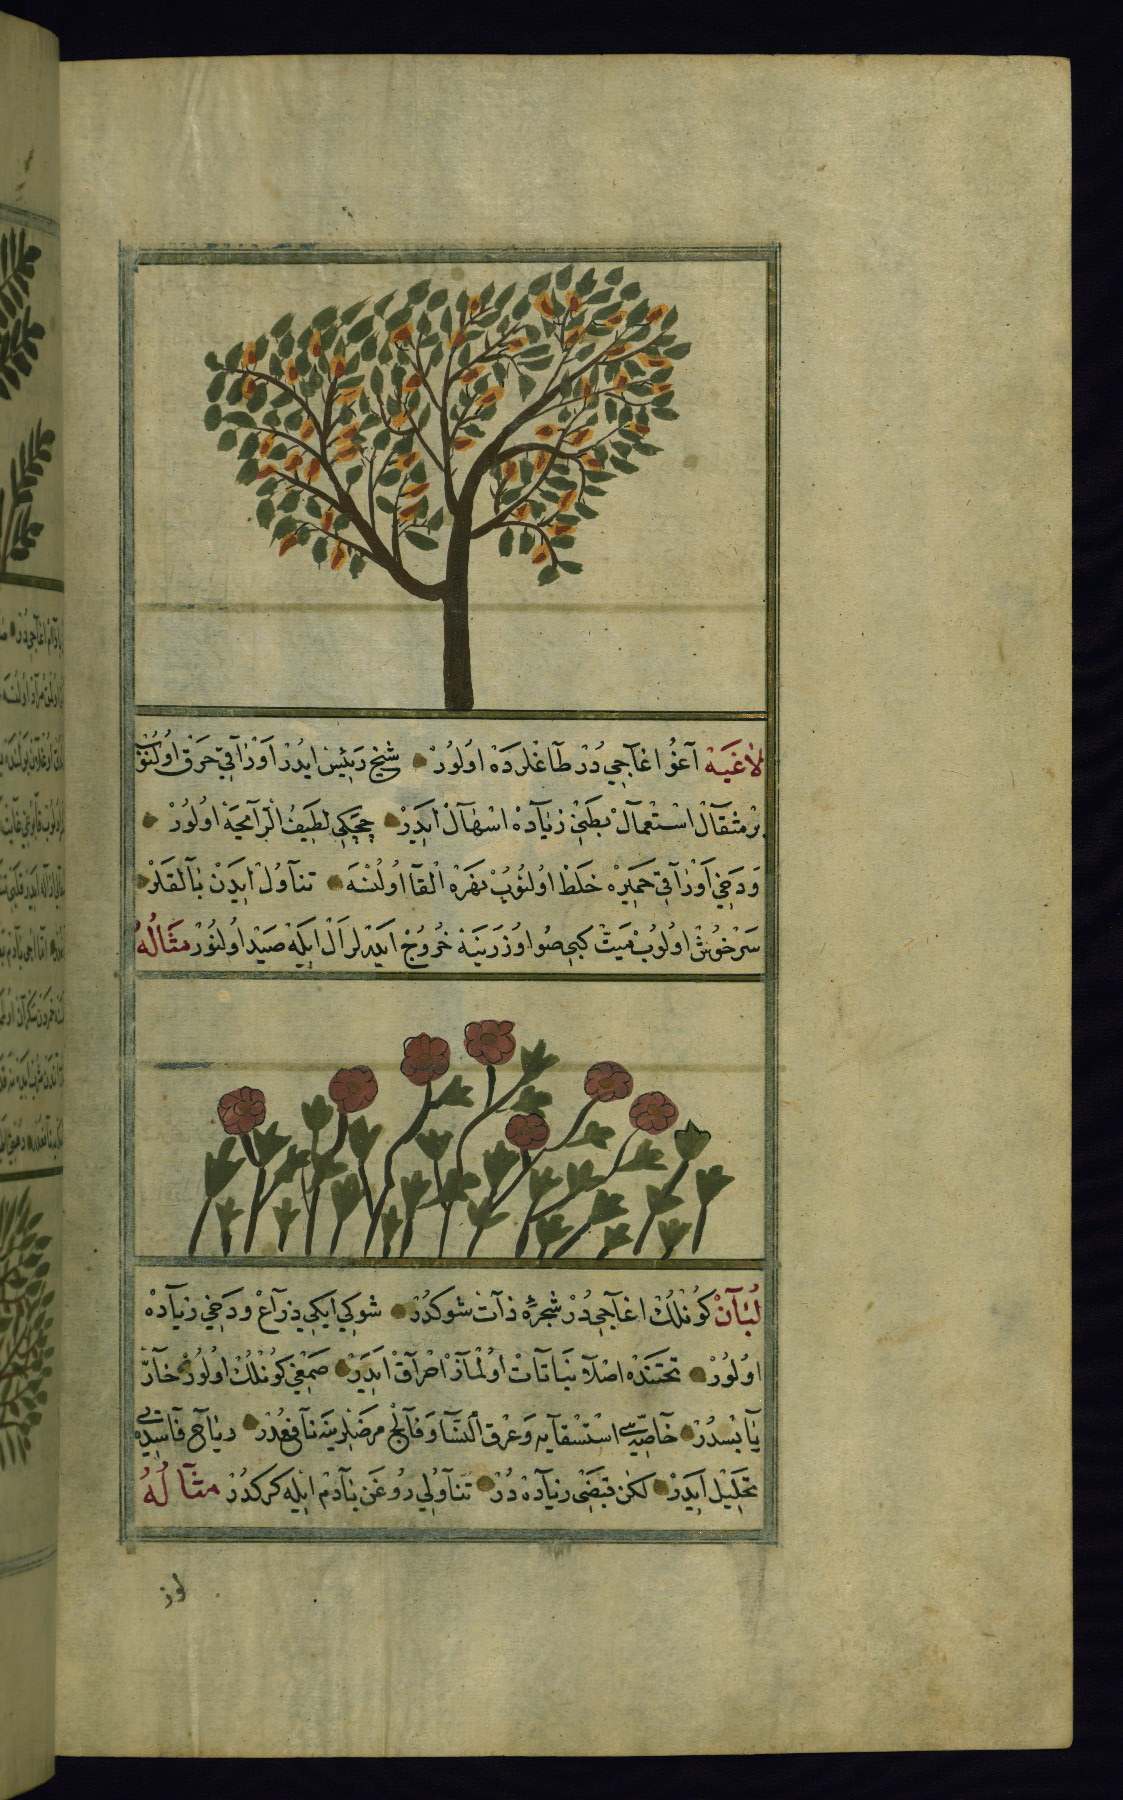 لاغيه آغو اغاجي در طاغلرده اولور شيخ رئيس ايدر اوراقي حرق اولنوب
بر مثقال استعمال بطني زياده اسهال ايدر چچكي لطيف الرايحه اولور
و دخي اوراقي خميره خلط اولنوب نهره القا اولنسه تناول ايدن بالقلر
سرخوش اولوب ميت كبي صو اوزرينه خروج ايدر لر ال ايله صيد اولنور مثاله
لبان كونلك اغاجي در شجره ذات شوكدر شوكي ايكي ذراع و دخي زياده
اولور تحتنده اصلا نباتات اولماز احراق ايدر صمغي كونلك اولور حار
يابسدر خاصيتي استسقايه و عرق النسا و فالج مرضلرينه نافعدر رياح فاسده يي
تحليل ايدر لكن قبضي زياده در تناولي روغن بادم ايله كركدر مثاله
لوز